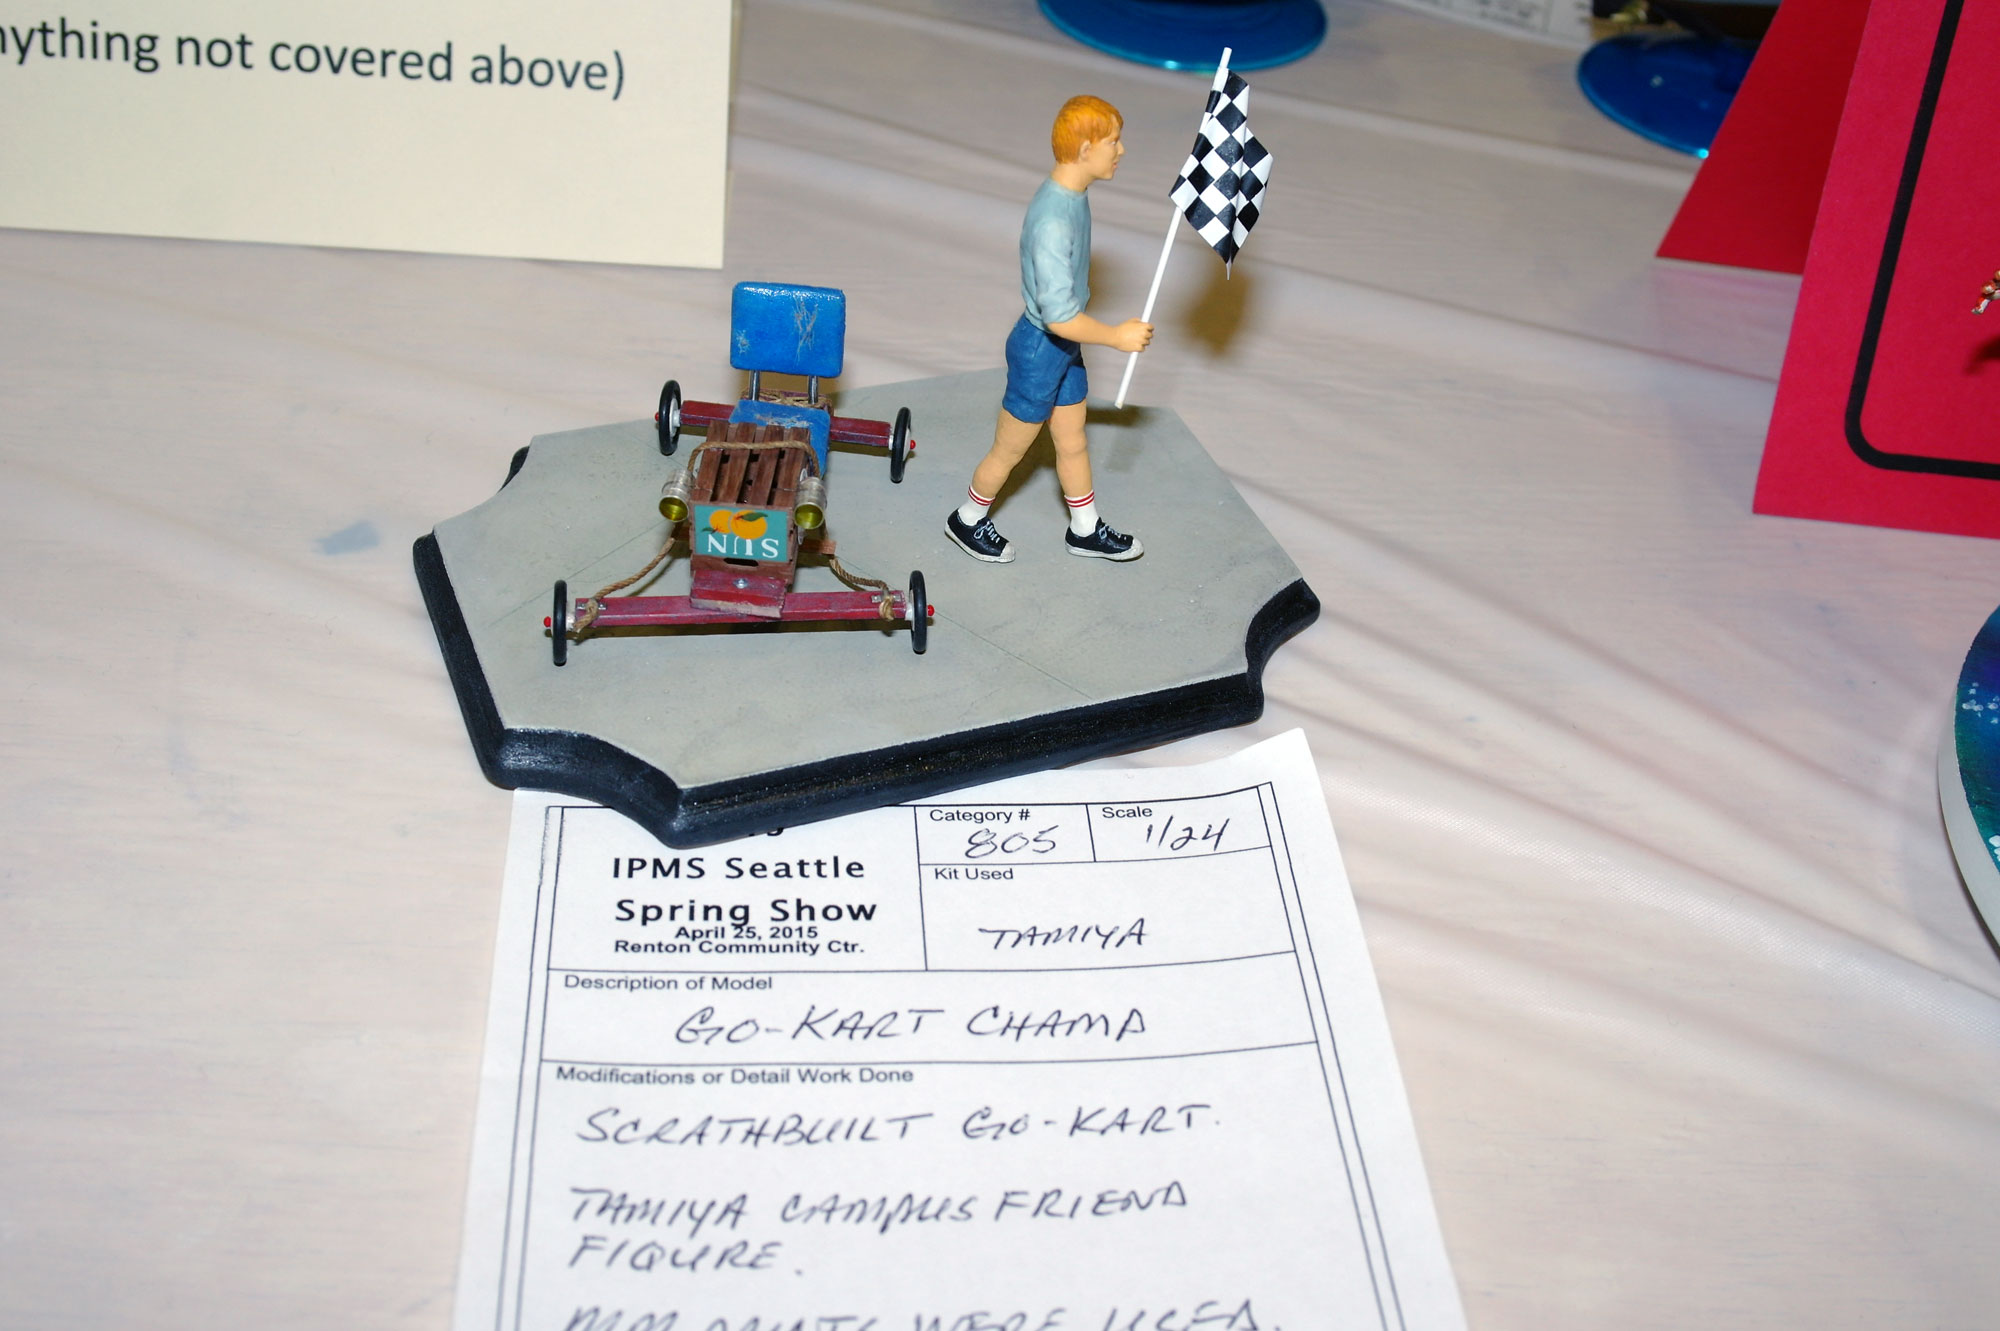 nything not covered above)
SUN
IPMS Seattle
Spring Show
April 25, 2015
Renton Community Ctr.
Category #
805
Scale
1/24
Kit Used
TAMIYA
Description of Model
GO-KART CHAMP
Modifications or Detail Work Done
SCRATHBUILT GO-KART.
TAMIYA CAMPUS FRIEND
FIGURE.
WERE USED.